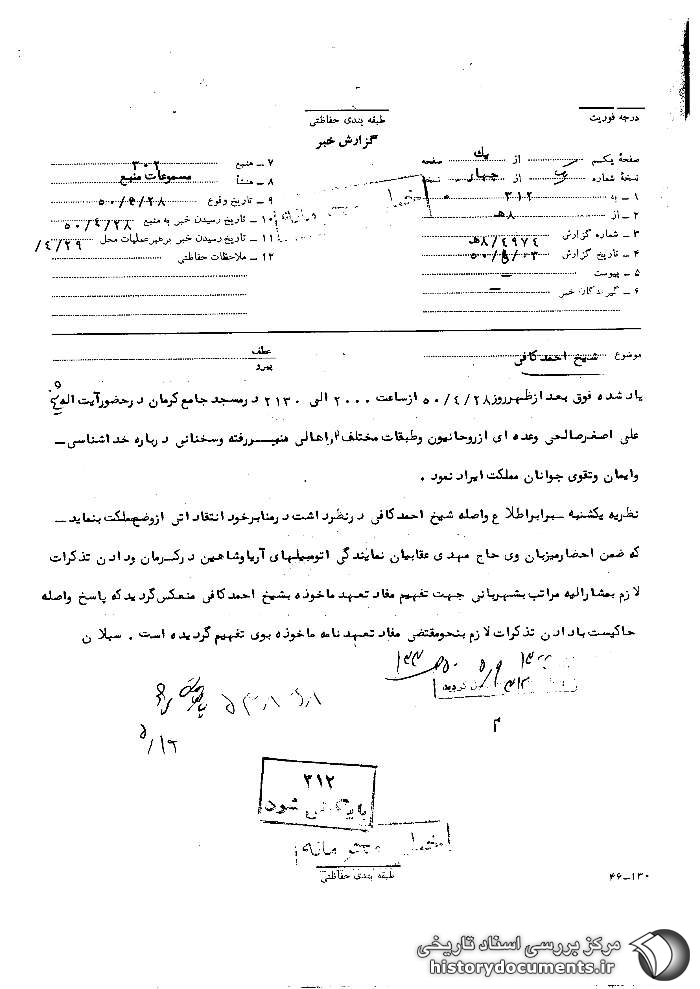 درجه فوریت
طبقه بندی حفاظتی
گزارش خبر
صفحه یکم از یک صفحه
نسخه شماره از چهار نسخه
۱ ـ به ۳۱۲
۲ ـ از ۸ هـ
۳ ـ شماره گزارش ۸/۴۹۷۴ هـ
۴ ـ تاریخ گزارش
۵ ـ پیوست ـ
۶ ـ گیرندگان خبر ـ
۷ ـ منبع ۳۰۲
۸ ـ منشأ مسموعات منبع
۹ ـ تاریخ وقوع ۵۰/۴/۲۸
۱۰ ـ تاریخ رسیدن خبر به منبع ۵۰/۴/۲۸
۱۱ ـ تاریخ رسیدن خبر برهبر عملیات محل /۴/۲۹
۱۲ ـ ملاحظات حفاظتی
موضوع شیخ احمد کافی
عطف
پیرو
یاد شده فوق بعد از ظهر روز ۵۰/۴/۲۸ از ساعت ۲۰۰۰ الی ۲۱۳۰ در مسجد جامع کرمان در حضور آیت اله شیخ
علی اصغر صالحی وعده ای از روحانیون وطبقات مختلف اهالی منبر رفته وسخنانی درباره خداشناسی ـ
وایمان وتقوی جوانان مملکت ایراد نمود .
نظریه یکشنبه ـ برابر اطلاع واصله شیخ احمد کافی در نظر داشت در منابر خود انتقاداتی از وضع مملکت بنماید ـ
که ضمن احضار میزبان وی حاج مهدی عقابیان نمایندگی اتومبیلهای آریا وشاهین در کرمان ودادن تذکرات
لازم بمشارالیه مراتب بشهربانی جهت تفهیم مفاد تعهد ماخوذه بشیخ احمد کافی منعکس گردید که پاسخ واصله
حاکیست با دادن تذکرات لازم بنحو مقتضی مفاد تعهد نامه ماخوذه بوی تفهیم گردیده است . سبلان
۳۱۲
بایگانی شود
خیلی محرمانه
طبقه بندی حفاظتی
۴۶ـ۱۳۰
مرکز بررسی اسناد تاریخی
historydocuments.ir